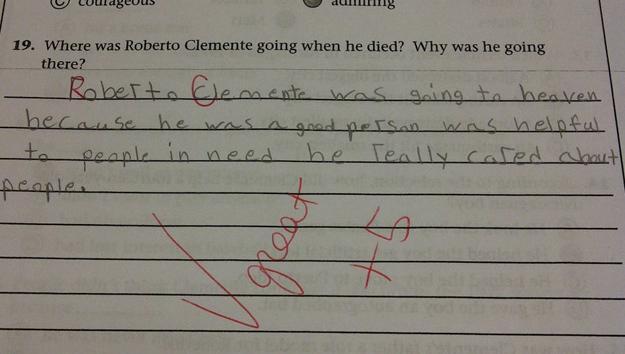 C courageous admiring
19. Where was Roberto Clemente going when he died? Why was he going
there?
Roberto Clemente was going to heaven
because he was a good person was helpful
to people in need he really cared about
people.
great
+5